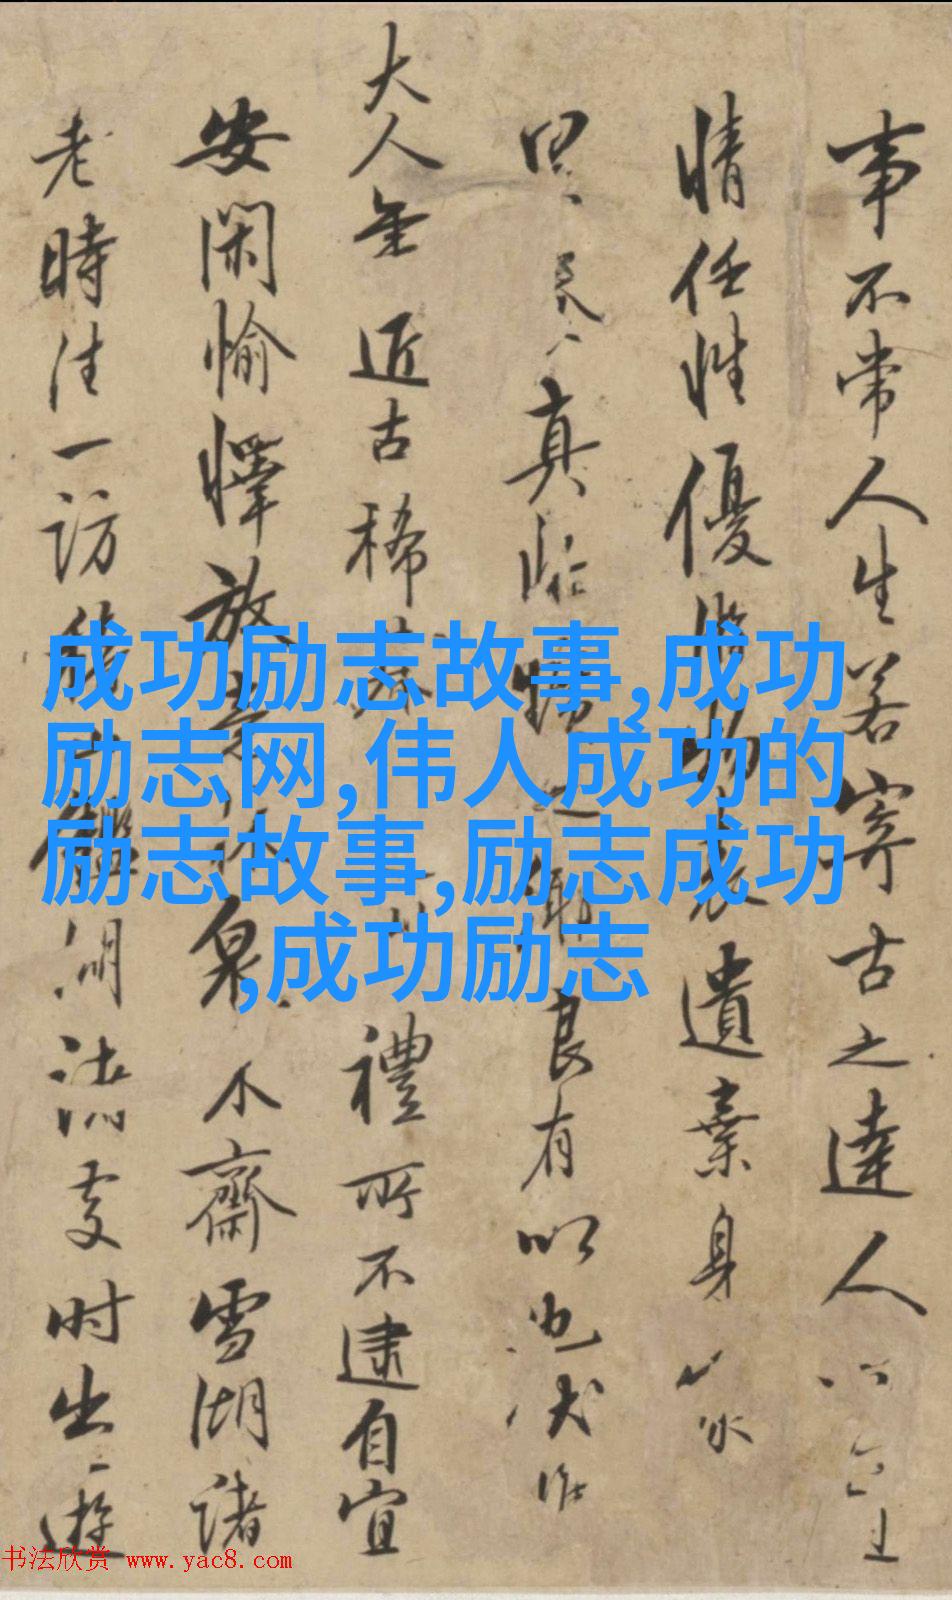 事不常人生若寄古之達人
情任性優遺棄身
真臨之良有以也伏惟
大人年近古稀禮所不逮自宜
安閑愉懌放泉不齋雪湖諸
老時往一訪湖流支时出遊
成功励志故事,成功
励志网,伟人成功的
励志故事,励志成功
,成功励志
书法欣赏 www.yac8.com